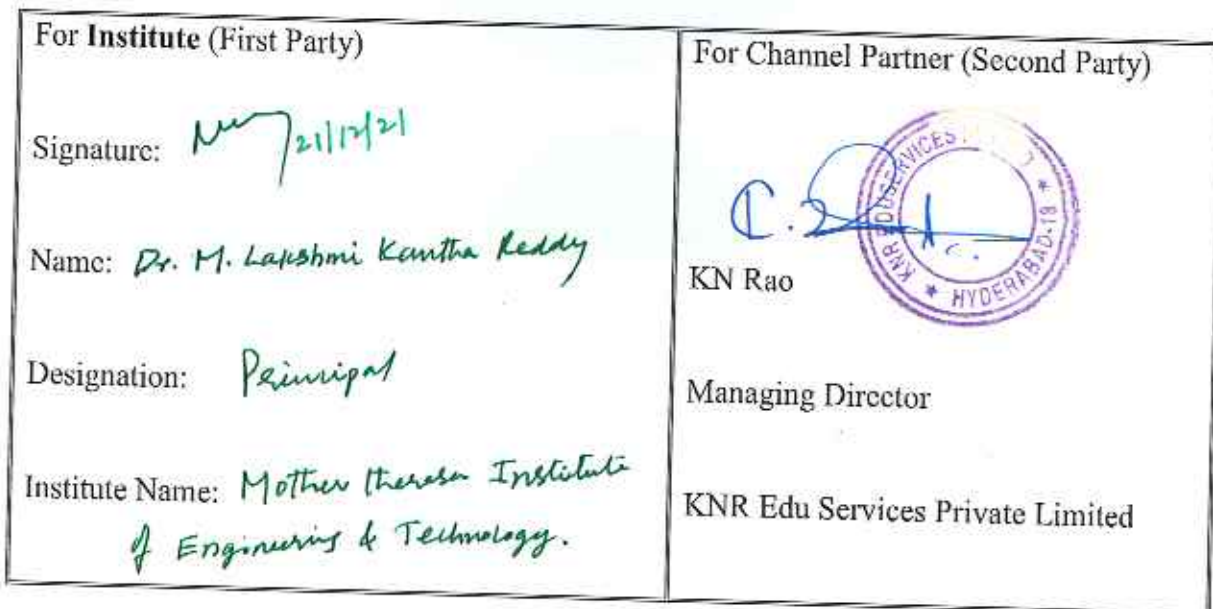 For Institute (First Party)
Signature: 21/12/21
Name: Dr. M. Lakshmi Kantha Reddy
Designation: Principal
Institute Name: Mother theresa Institute
of Engineering & Technology.
For Channel Partner (Second Party)
KNR EDUSERVICES
* HYDERABAD-18 *
KN Rao
Managing Director
KNR Edu Services Private Limited